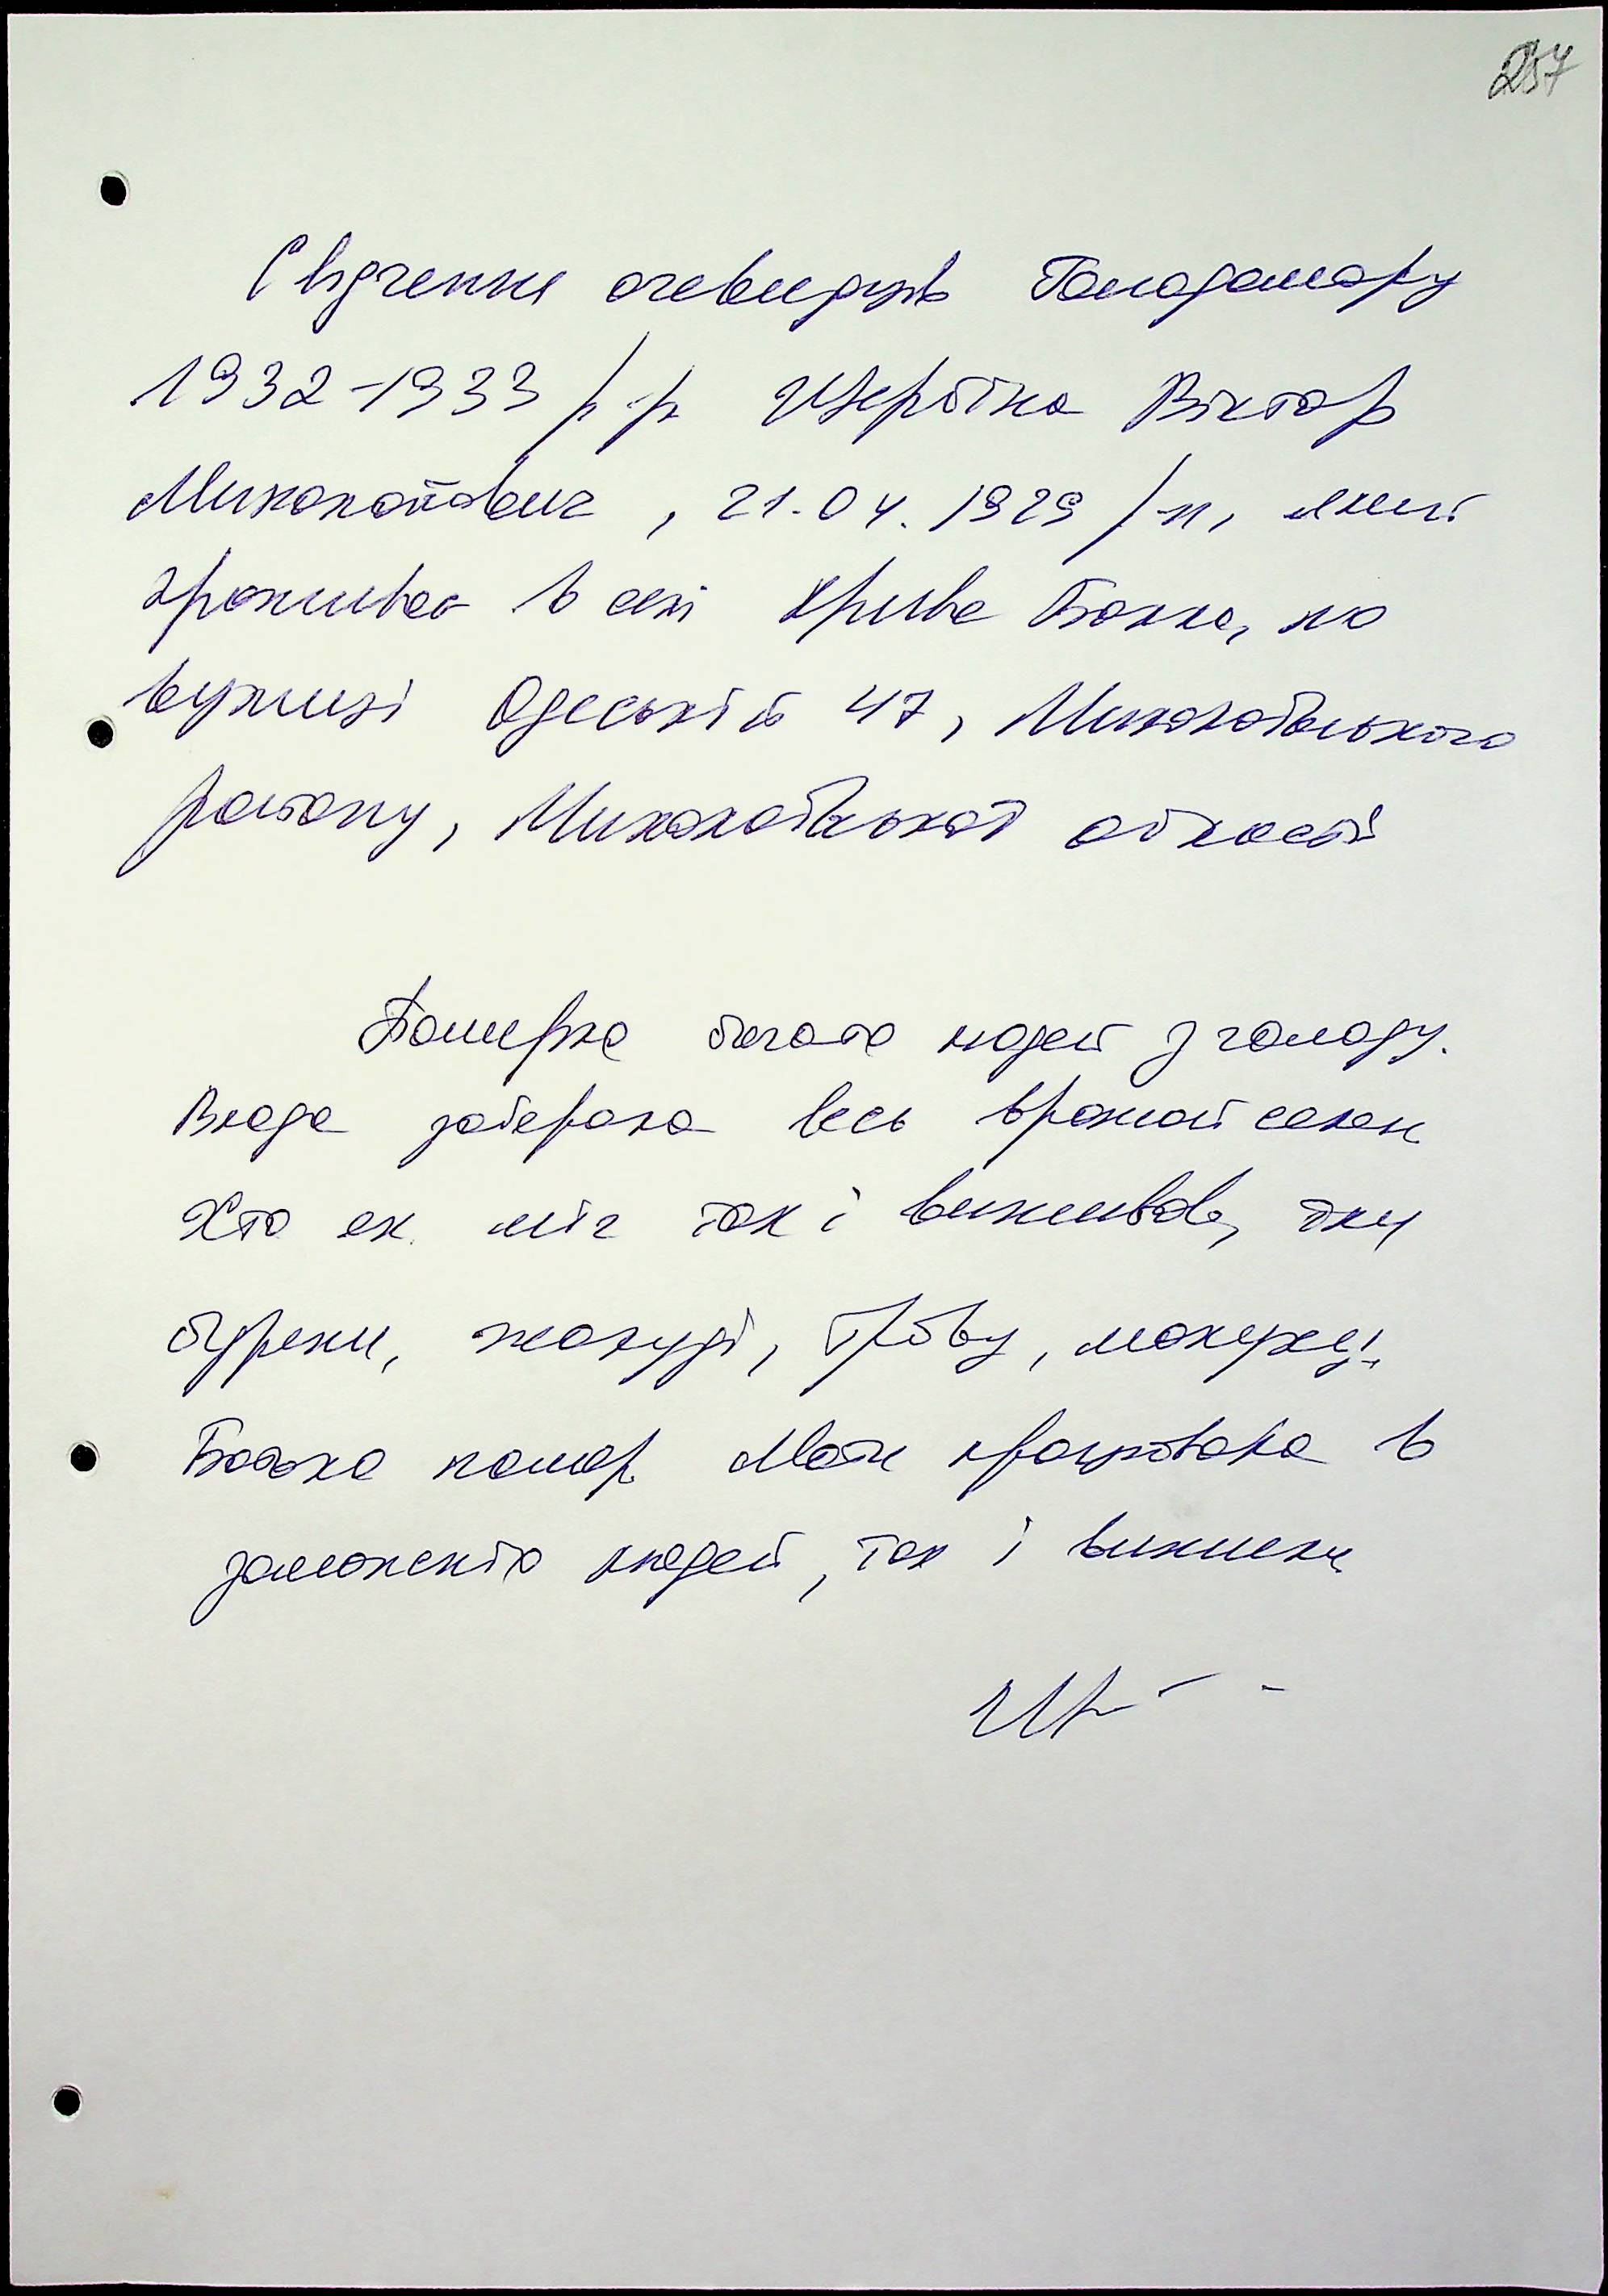 257
Свідчення очевидців Голодомору
1932-1933 р.р. Щербина Віктор
Миколайович, 21.04.1929 р.н, який
проживає в селі Крива Балка, по
вулиці Одеській 47, Миколаївського
району, Миколаївської області
Померло багато людей з голоду.
Влада заберала весь врожай селян
Хто як міг так і виживав, їли
буряки, жолуді, траву, макуху.
Батько помер Мати працювала в
заможних людей, так і вижили